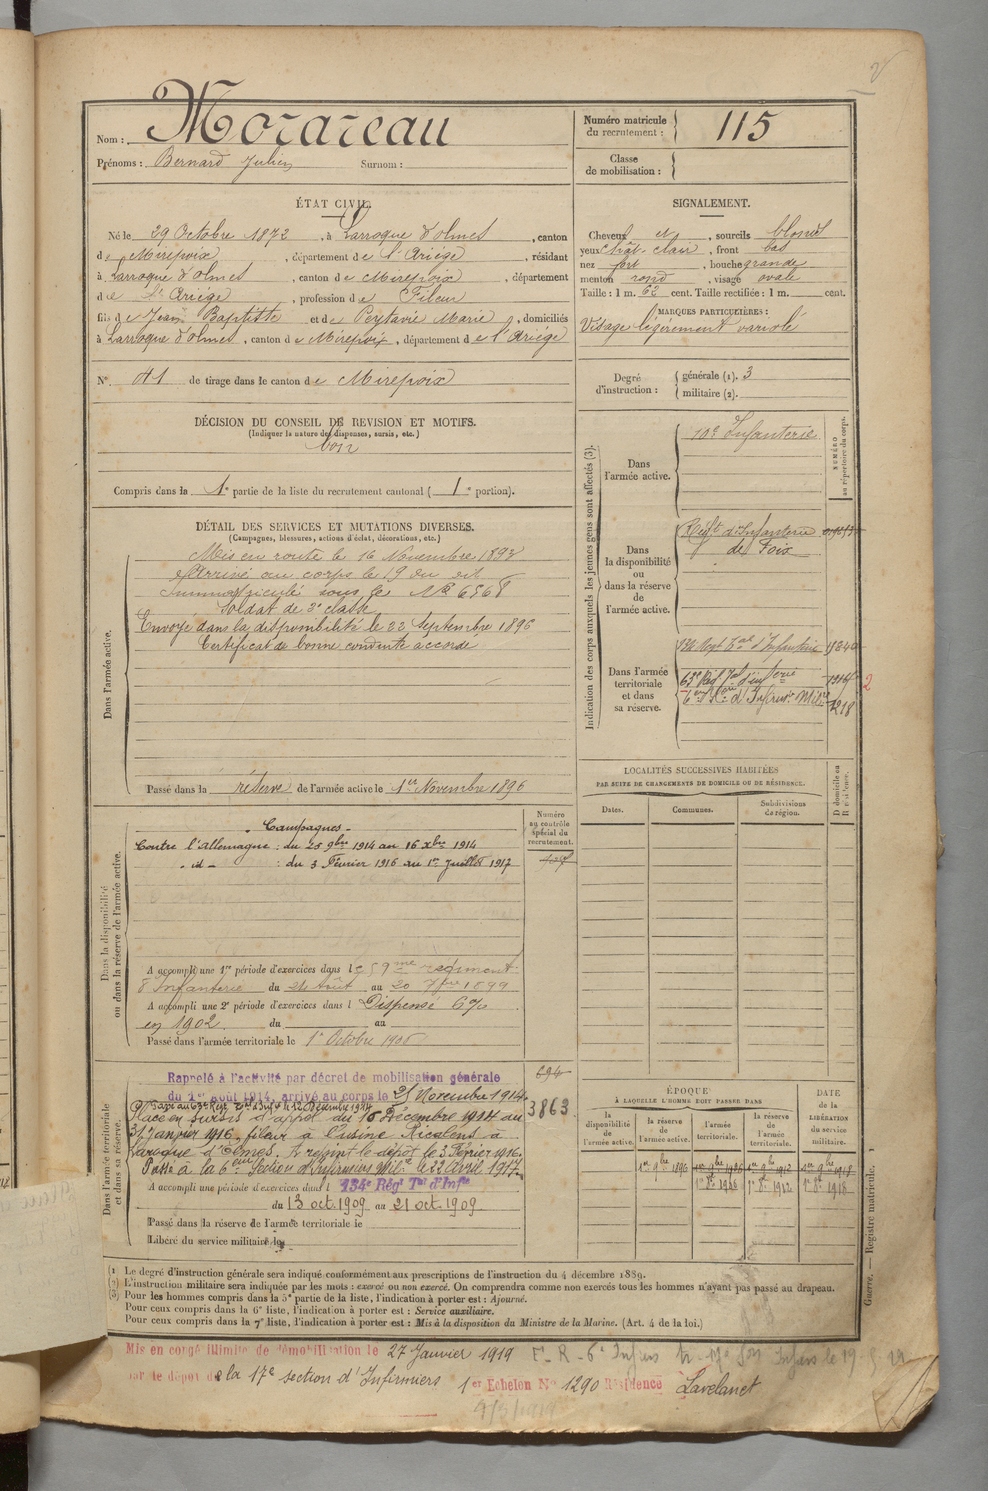 Nom : Morareau
Prénoms : Bernard Julien Surnom :
Numéro matricule du recrutement : 115
Classe de mobilisation :
ÉTAT CIVIL.
Né le 29 Octobre 1872, à Larroque d'olmes, canton
de Mirepoix, département de l'Ariége, résidant
à Larroque d'olmes, canton de Mirepoix, département
de l'Ariége, profession de Fileur
fils de Jean Baptiste et de Peytavie Marie, domiciliés
à Larroque d'olmes, canton de Mirepoix, département de l'Ariége
N° 41 de tirage dans le canton de Mirepoix
DÉCISION DU CONSEIL DE REVISION ET MOTIFS.
(Indiquer la nature des dispenses, sursis, etc.)
bon
Compris dans la 1e partie de la liste du recrutement cantonal (1e portion).
DÉTAIL DES SERVICES ET MUTATIONS DIVERSES.
(Campagnes, blessures, actions d'éclat, décorations, etc.)
Dans l'armée active.
Mis en route le 16 Novembre 1893
Arrivé au corps le 19 du dit
Immatriculé sous le N° 6568
Soldat de 2e classe
Envoyé dans la disponibilité le 22 Septembre 1896
Certificat de bonne conduite accordé
Passé dans la réserve de l'armée active le 1er Novembre 1896
SIGNALEMENT.
Cheveux et, sourcils blonds
yeux chât. clair, front bas
nez fort, bouche grande
menton rond, visage ovale
Taille : 1 m. 62 cent. Taille rectifiée : 1 m. cent.
MARQUES PARTICULIÈRES :
Visage légèrement variolé
Degré d'instruction :
générale (1). 3
militaire (2).
Indication des corps auxquels les jeunes gens sont affectés (3).
NUMÉRO au répertoire du corps.
Dans l'armée active.
10e Infanterie
Dans la disponibilité ou dans la réserve de l'armée active.
Regt d'Infanterie
de Foix
Dans l'armée territoriale et dans sa réserve.
Regt Tal d'Infanterie
63e Rég Tal d'inferie
6e d'Infirm. Milre 1218
2
LOCALITÉS SUCCESSIVES HABITÉES
PAR SUITE DE CHANGEMENTS DE DOMICILE OU DE RÉSIDENCE.
Dates. Communes. Subdivisions de région. D domicile ou R résidence.
Dans la disponibilité ou dans la réserve de l'armée active.
Numéro au contrôle spécial du recrutement.
Campagnes
Contre l'Allemagne : du 25 9bre 1914 au 16 Xbre 1914
- id - : du 3 Février 1916 au 1er Juillet 1917
A accompli une 1re période d'exercices dans le 59me régiment
d'Infanterie du 24 Août au 20 7bre 1899
A accompli une 2e période d'exercices dans l Dispensé
en 1902. du au
Passé dans l'armée territoriale le 1er Octobre 1906
Dans l'armée territoriale et dans sa réserve.
694
3863
Rappelé à l'activité par décret de mobilisation générale
du 1er Août 1914, arrivé au corps le 25 Novembre 1914
Passé au 63e Régt Tal d'Inf le 12 Décembre 1914
Placé en sursis d'appel du 16 Décembre 1914 au
31 Janvier 1916, fileur à l'usine Ricalens à
Laroque d'Olmes. A rejoint le dépôt le 3 Février 1916.
Passé à la 6eme Section d'Infirmiers Milre le 22 Avril 1917.
A accompli une période d'exercices dans l 134e Régt Tal d'Infie
du 13 oct. 1909 au 21 oct. 1909
Passé dans la réserve de l'armée territoriale le
Libéré du service militaire le
ÉPOQUE
À LAQUELLE L'HOMME DOIT PASSER DANS
la disponibilité de l'armée active. la réserve de l'armée active. l'armée territoriale. la réserve de l'armée territoriale.
DATE de la LIBÉRATION du service militaire.
1er 9bre 1896 1er 9bre 1906 1er 9bre 1912 1er 9bre 1918
1er 8re 1906 1er 8re 1912 1er 8re 1918
(1) Le degré d'instruction générale sera indiqué conformément aux prescriptions de l'instruction du 4 décembre 1889.
(2) L'instruction militaire sera indiquée par les mots : exercé ou non exercé. On comprendra comme non exercés tous les hommes n'ayant pas passé au drapeau.
(3) Pour les hommes compris dans la 5e partie de la liste, l'indication à porter est : Ajourné.
Pour ceux compris dans la 6e liste, l'indication à porter est : Service auxiliaire.
Pour ceux compris dans la 7e liste, l'indication à porter est : Mis à la disposition du Ministre de la Marine. (Art. 4 de la loi.)
Guerre. — Registre matricule. 1
Mis en congé illimité de démobilisation le 27 Janvier 1919
par le dépôt de la 17e section d'Infirmiers 1er Echelon N° 1290 Résidence Lavelanet